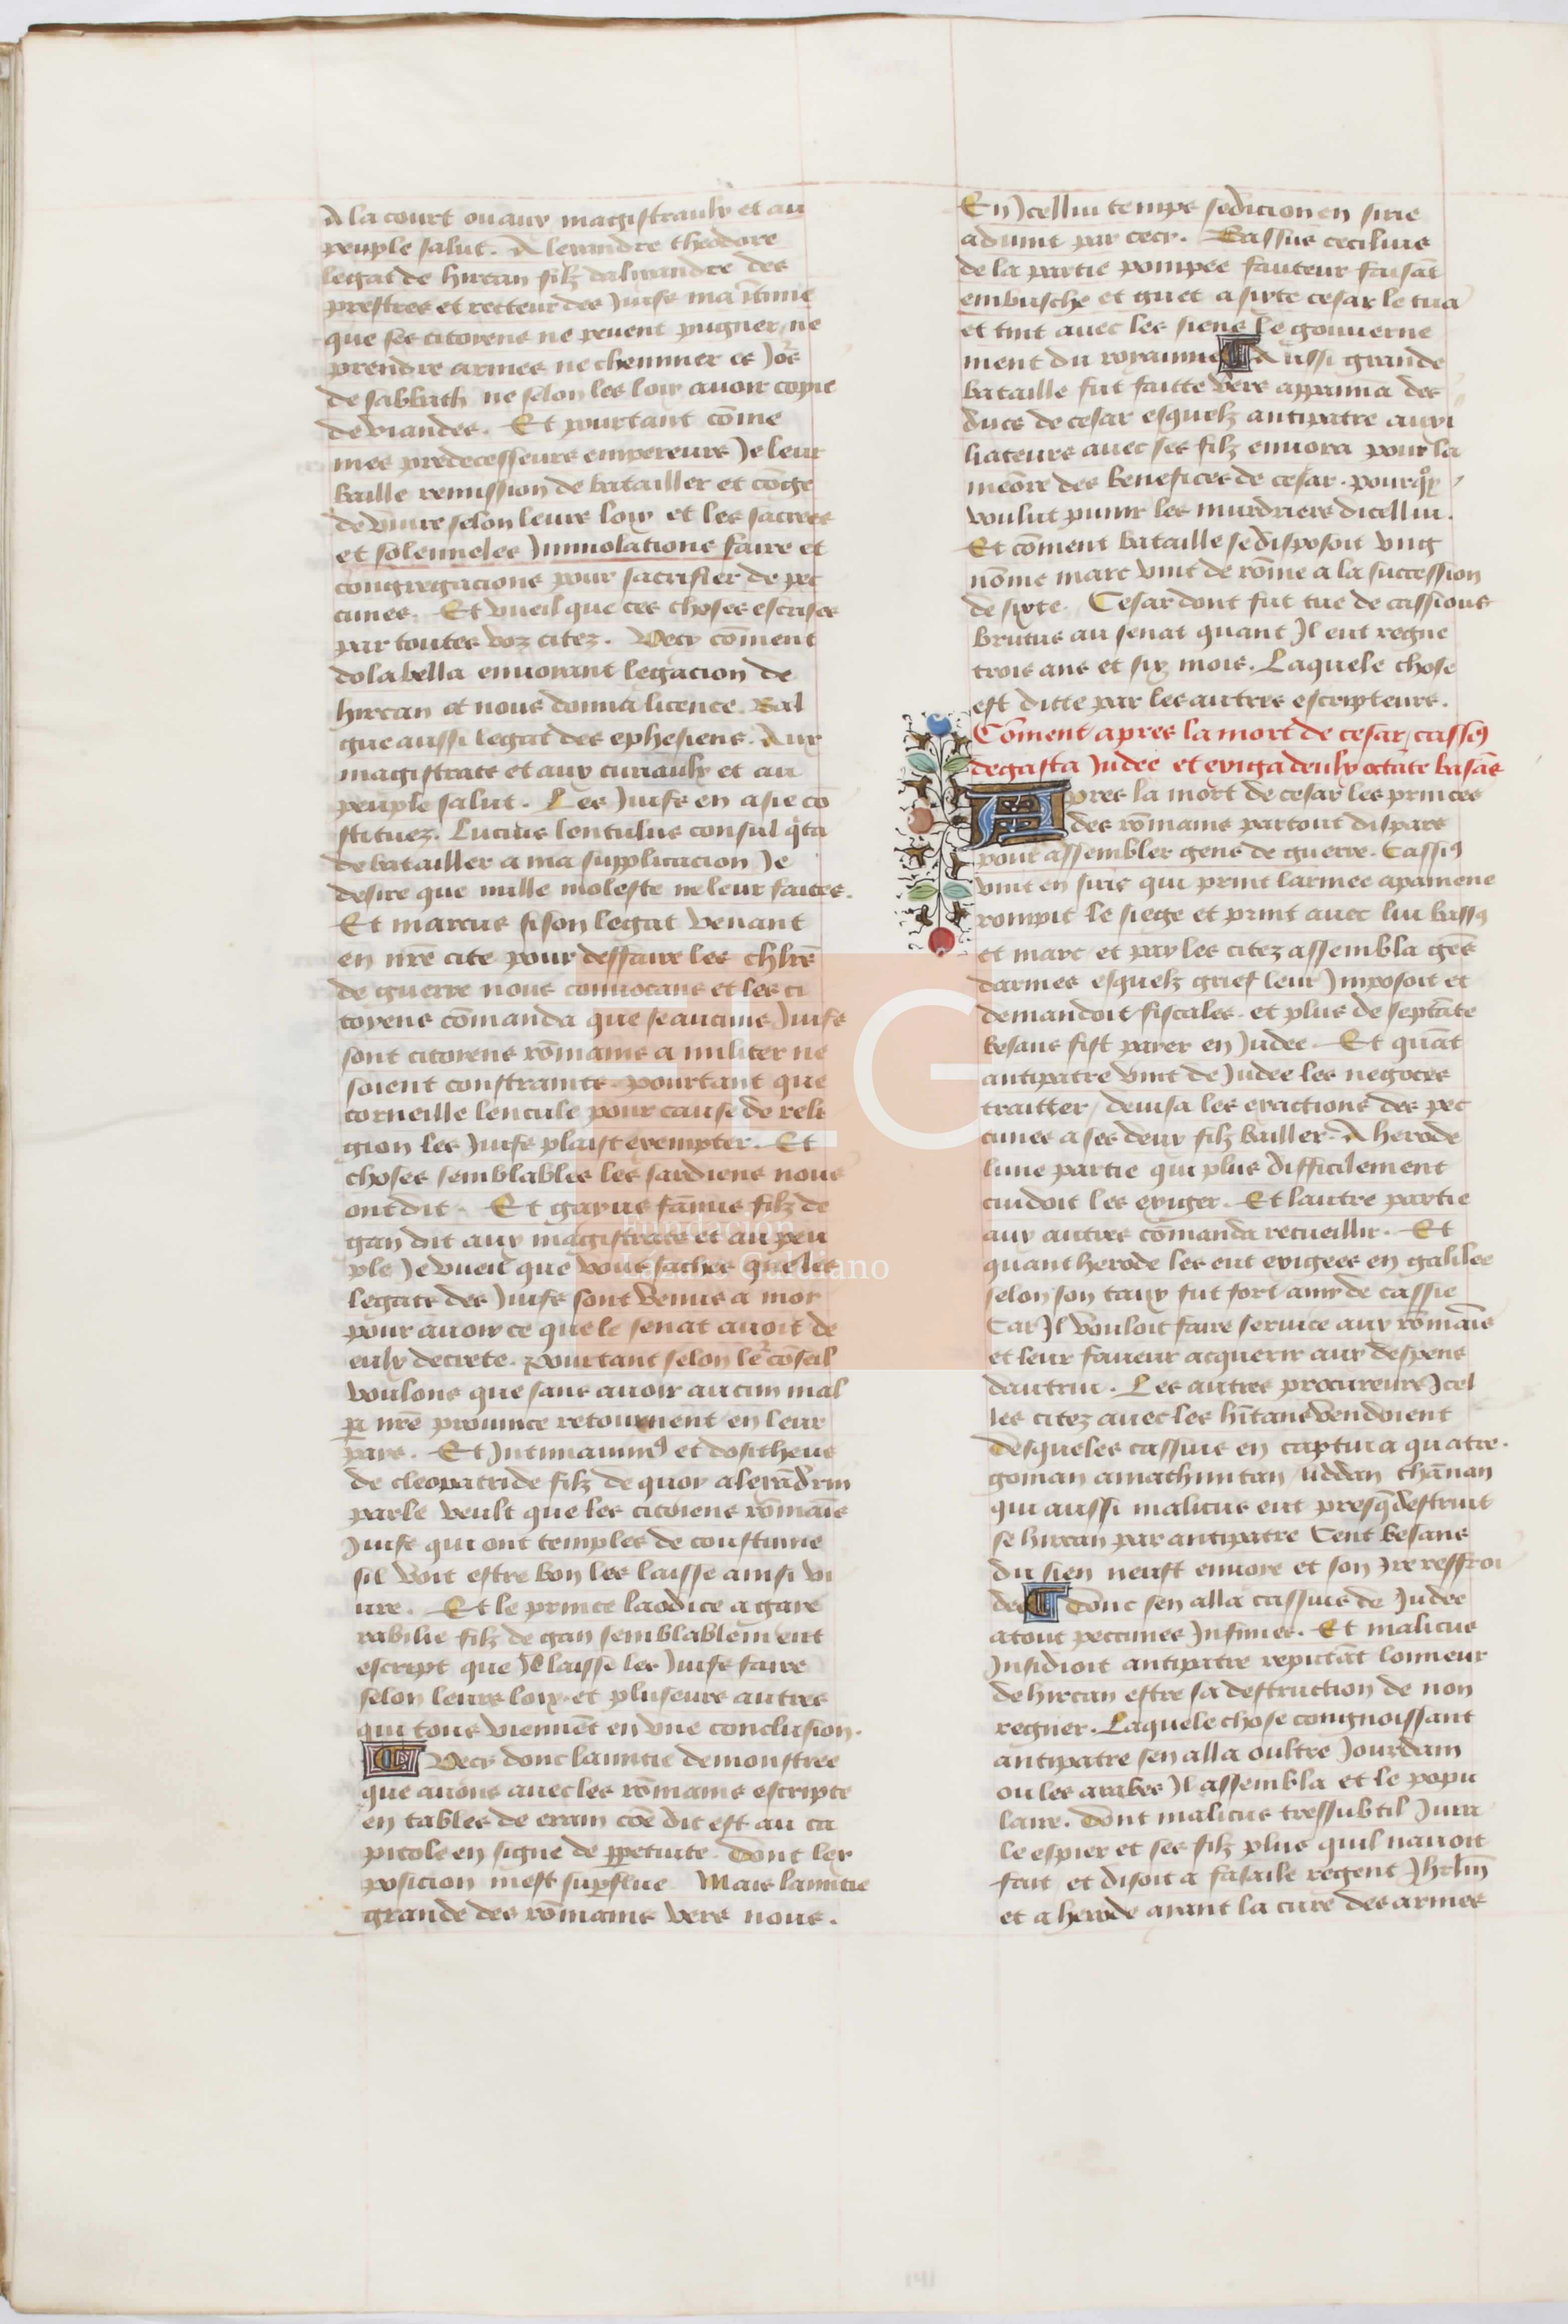 A la court ou aux magistraulx et au
peuple salut. Alexandre theodore
legat de hircan filz dalixandre des
prestres et recteur des Juifs ma ītime
que ses citoyens ne peuent pugner / ne
prendre armes ne cheminer es Jors
de sabbath ne selon les loix auoir copie
de viandes. Et pourtant cōme
mes predecesseurs empereurs Je leur
baille remission de batailler et cōge
de viure selon leurs loix et les sacrees
et solenneles Jmmolations faire et
congregacions pour sacrifier de pec
cunes. Et vueil que ces choses escrises
par toutes voz citez. Vecy cōment
dolabella enuoyant legacion de
hircan et nous donna licence. Bal
gue aussi legat des ephesiens. Aux
magistrats et aux curiaulx et au
peuple salut. Les Juifs en asie cō
stituez. Lucius lentulus consul q̄ta
de batailler a ma supplicacion Je
desire que nulle moleste ne leur faites.
Et marcus sison legat venant
en nr̄e cite pour deffaire les chlr̄s
de guerre nous conuocans et les ci
toyens cōmanda que se aucuns Juifs
sont citoyens rōmains a militer ne
soient constrains. pourtant que
corneille lencule pour cause de reli
gion les Juifs plaist exempter. Et
choses semblables les sardiens nous
ont dit. Et gayus fānus filz de
gan dit aux magistrats et au peu
ple Je vueil que vous sachez que les
legats des Juifs sont venus a moy
pour auoir ce que le senat auoit de
eulx decrete. pourtant selon le cōseil
voulons que sans auoir aucun mal
p̄ nr̄e prouince retournent en leur
pays. Et
de cleopatride filz de quoy alexād'rin
parle veult que les citoiens rōmaīs
Juifs qui ont temples de coustume
sil voit estre bon les laisse ainsi vi
ure. Et le prince laodice a gare
rabilie filz de gan semblablement
escript que Je laisse les Juifs faire
selon leurs loix. et pluseurs autres
qui tous viennēt en vne conclusion.
Vecy donc lamitie demonstree
que auons auec les rōmains escripte
en tables de erain cōe dit est au ca
pitole en signe de ꝑpetuite. Dont lex
posicion mest suꝑflue Mais lamitie
grande des rōmains vers nous.
En Jcellui temps sedicion en sirie
aduint par cecy. Bassus cecilius
de la partie pompee fauteur faisāt
embusche et guet a sixte cesar le tua
et tint auec les siens le gouuerne
ment du royaume Aussi grande
bataille fut faitte vers appamia des
ducs de cesar esquelz antipatre auxi
liateurs auec ses filz enuoya pour la
memōre des benefices de cesar. pourqͦy
voulut punir les murdriers dicellui.
Et cōment bataille se disposoit vng
nōme marc vint de rōme a la succession
de sixte. Cesar dont fut tue de cassious
brutus au senat quant Jl eut regne
trois ans et six mois. Laquele chose
est ditte par les autres escripteurs.
Cōment apres la mort de cesar / cassiꝰ
degasta Judee et exiga deulx octāte basās
Apres la mort de cesar les princes
des rōmains partout dispars
pour assembler gens de guerre. Cassiꝰ
vint en sirie qui print larmee apamene
rompit le siege et print auec lui bassꝰ
et marc et par les citez assembla gēs
darmes esquelz grief leur Jmposoit et
demandoit fiscales. et plus de septāte
besans fist payer en Judee. Et quāt
antipatre vint de Judee les negoces
traitter / deuisa les exactions des pec
cunes a ses deux filz bailler. A herode
lune partie qui plus difficilement
cuidoit les exiger. Et lautre partie
aux autres cōmanda recueillir. Et
quant herode les eut exigees en galilee
selon son taux fut fort amy de cassie
Car Jl vouloit faire seruice aux rōmaīs
et leur faueur acquerir aux despens
dautrui. Les autres procureurs Jcel
les citez auec les hītans vendoient
desqueles cassius en captura quatre.
goman amathuntan / uddan thānan
qui aussi malicus eut presq̄ destruit
se hircan par antipatre Cent besans
du sien neust enuoye et son Jre reffroi
dee Donc sen alla cassius de Judee
atout peccunes Jnfinies. Et malicus
Jnsidioit antipatre reputāt lonneur
de hircan estre sa destruction de non
regner. Laquele chose congnoissant
antipatre sen alla oultre Jourdain
ou les arabes Jl assembla et le popu
laire. Dont malicus tressubtil Jura
le espier et ses filz plus quil nauoit
fait et disoit a fasaile regent Jhrl̄m
et a herode ayant la cure des armes
LG
Fundación
Lázaro Galdiano